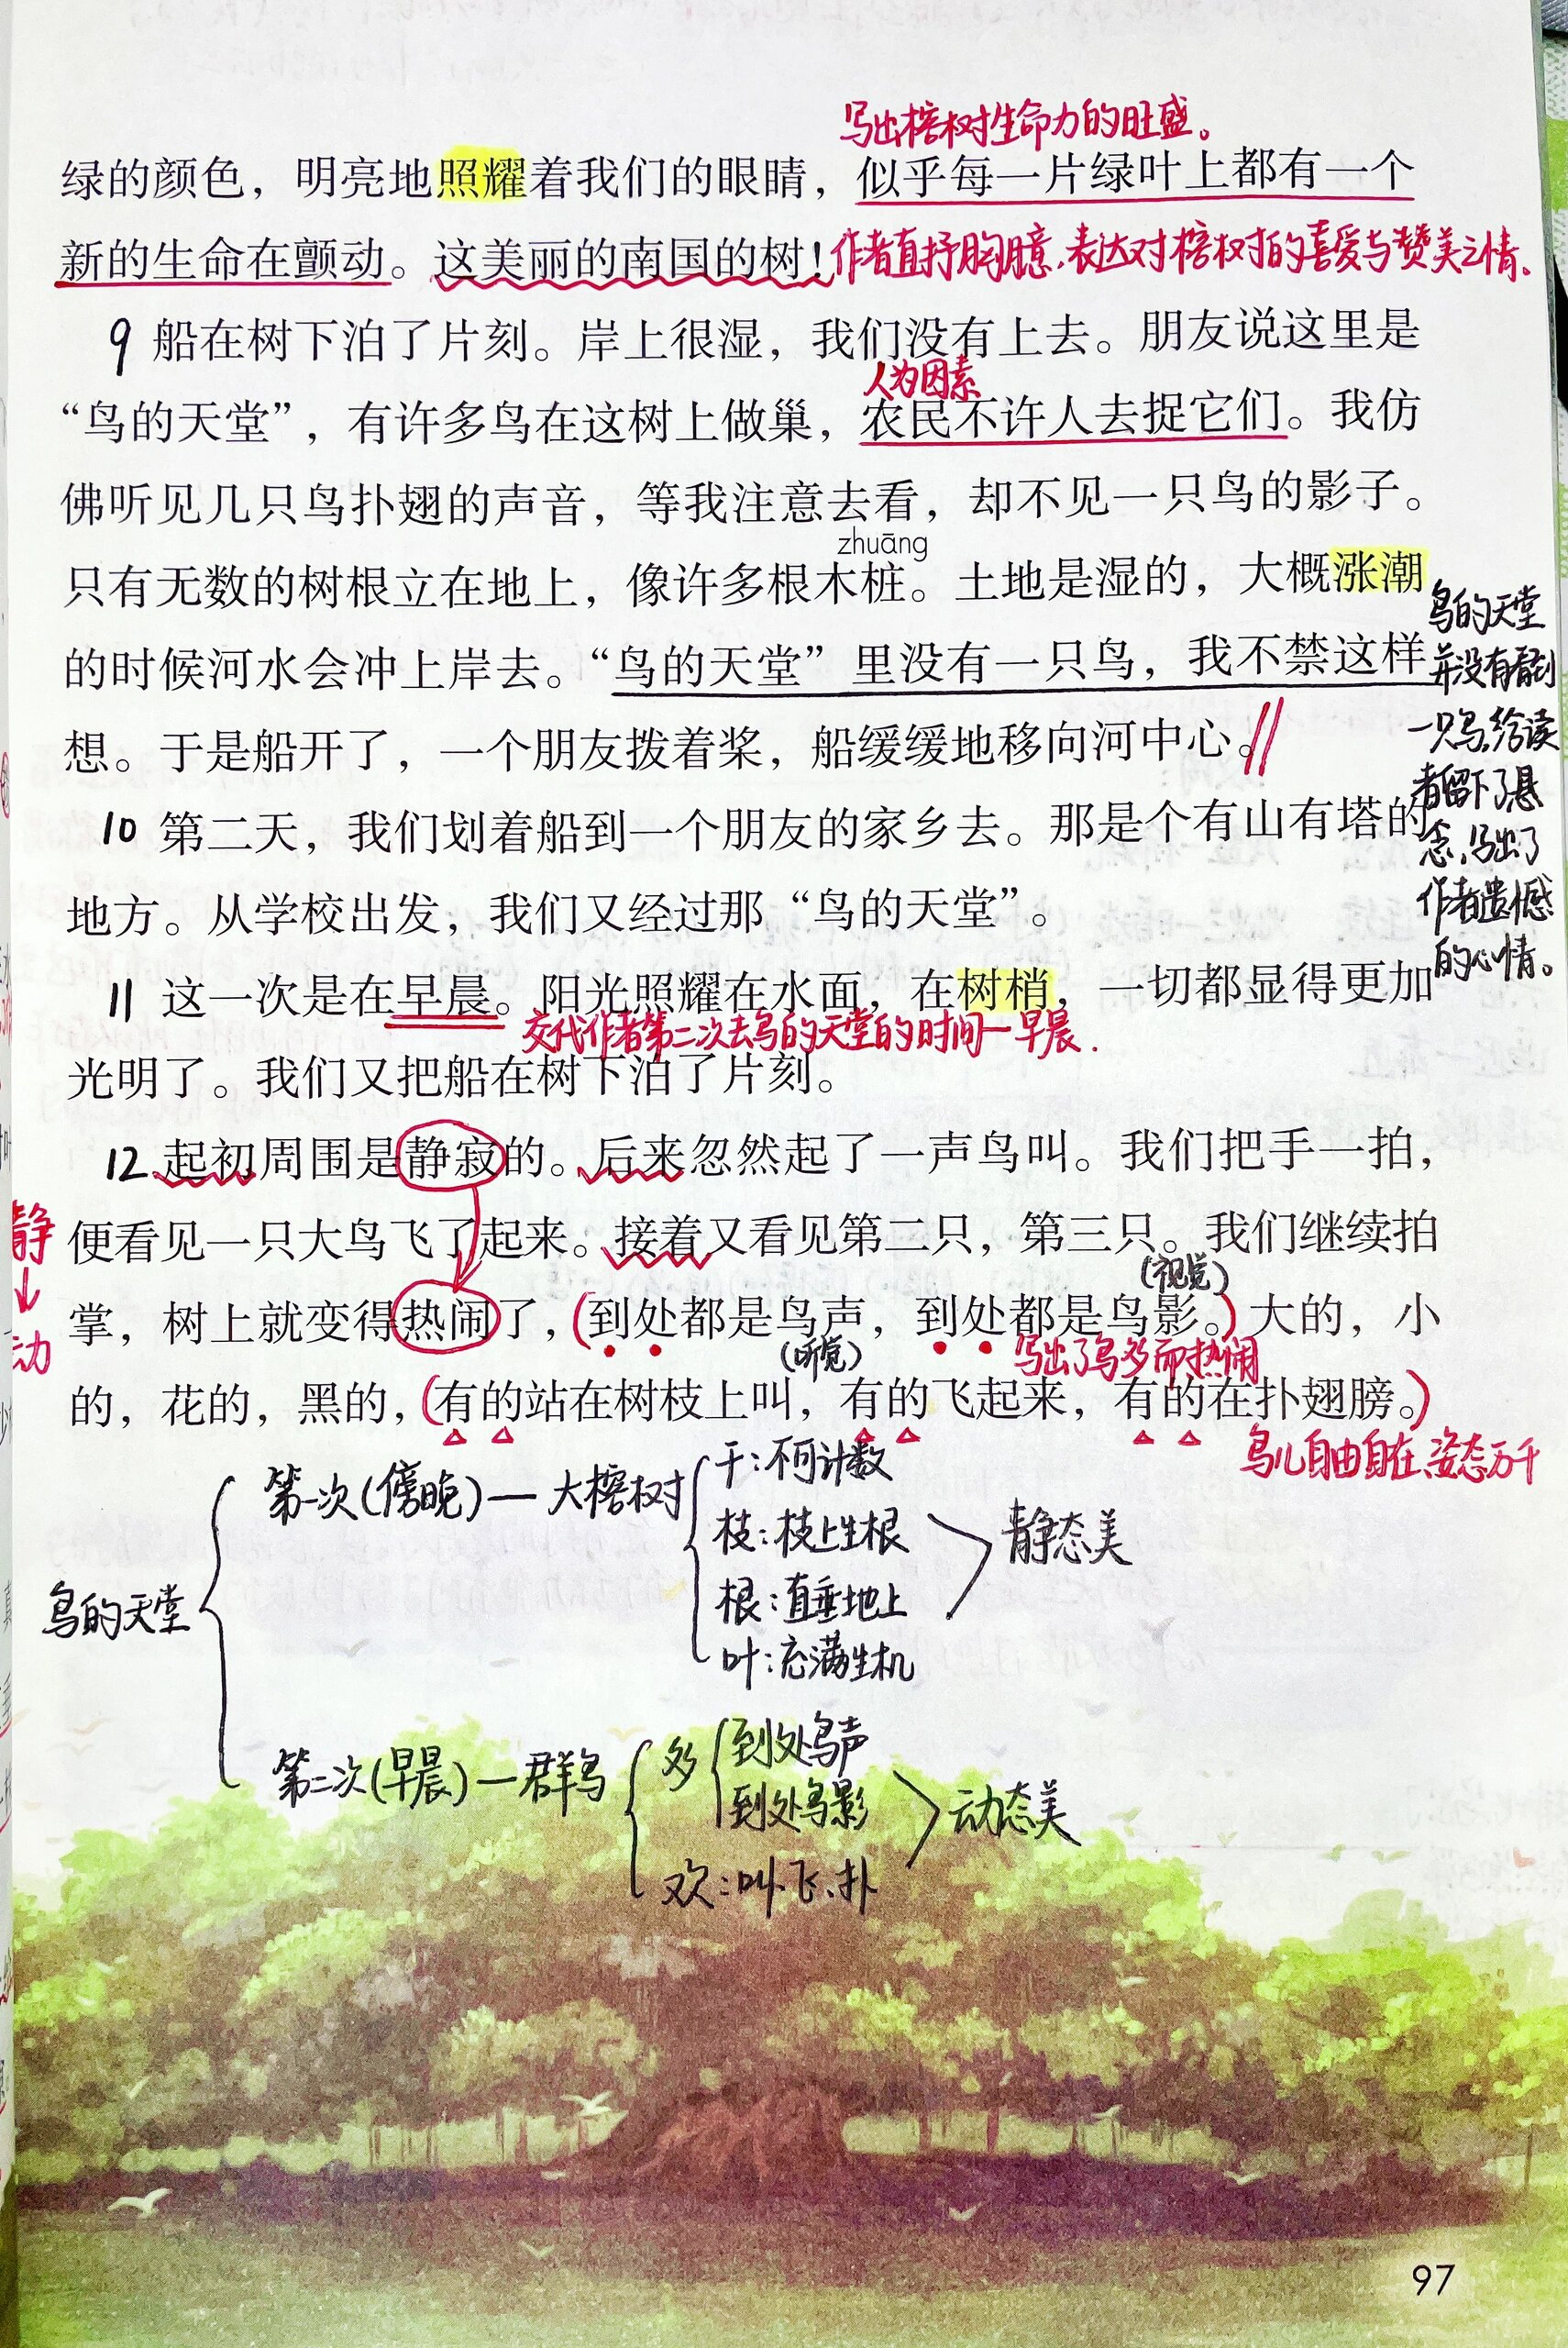 写出榕树生命力的旺盛。
绿的颜色，明亮地照耀着我们的眼睛，似乎每一片绿叶上都有一个
新的生命在颤动。这美丽的南国的树！作者直抒胸臆，表达对榕树的喜爱与赞美之情。
9 船在树下泊了片刻。岸上很湿，我们没有上去。朋友说这里是
人为因素
“鸟的天堂”，有许多鸟在这树上做巢，农民不许人去捉它们。我仿
佛听见几只鸟扑翅的声音，等我注意去看，却不见一只鸟的影子。
zhuāng
只有无数的树根立在地上，像许多根木桩。土地是湿的，大概涨潮
的时候河水会冲上岸去。“鸟的天堂”里没有一只鸟，我不禁这样
想。于是船开了，一个朋友拨着桨，船缓缓地移向河中心。
鸟的天堂
并没有看到
一只鸟，给读
者留下了悬
念，写出了
作者遗憾
的心情。
10 第二天，我们划着船到一个朋友的家乡去。那是个有山有塔的
地方。从学校出发，我们又经过那“鸟的天堂”。
11 这一次是在早晨。阳光照耀在水面，在树梢，一切都显得更加
交代作者第二次去鸟的天堂的时间一早晨.
光明了。我们又把船在树下泊了片刻。
12 起初周围是静寂的。后来忽然起了一声鸟叫。我们把手一拍，
便看见一只大鸟飞了起来。接着又看见第二只，第三只。我们继续拍
静
↓
动
(视觉)
掌，树上就变得热闹了，(到处都是鸟声，到处都是鸟影。)大的，小
(听觉)
写出了鸟多而热闹
的，花的，黑的，(有的站在树枝上叫，有的飞起来，有的在扑翅膀。)
鸟儿自由自在、姿态万千
鸟的天堂
第一次(傍晚)—大榕树
干:不可计数
枝:枝上生根
根:直垂地上
叶:充满生机
静态美
第二次(早晨)—群鸟
多
到处鸟声
到处鸟影
欢:叫、飞、扑
动态美
97